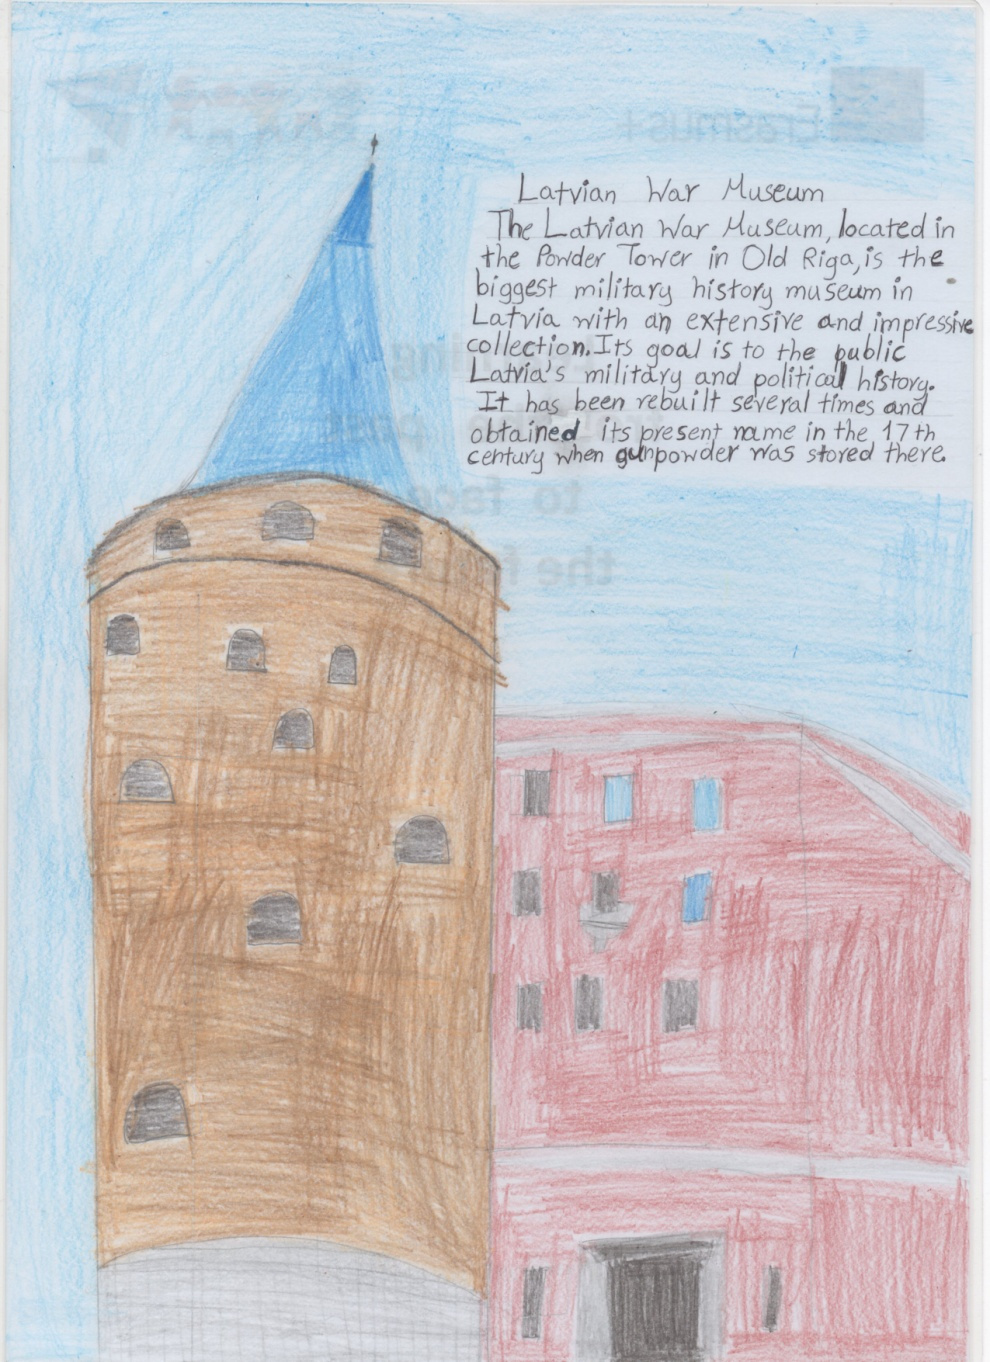 Erasmus+
Latvian War Museum
The Latvian War Museum, located in
the Powder Tower in Old Riga, is the
biggest military history museum in
Latvia with an extensive and impressive
collection. Its goal is to the public
Latvia's military and political history.
It has been rebuilt several times and
obtained its present name in the 17th
century when gunpowder was stored there.
past
to face
the